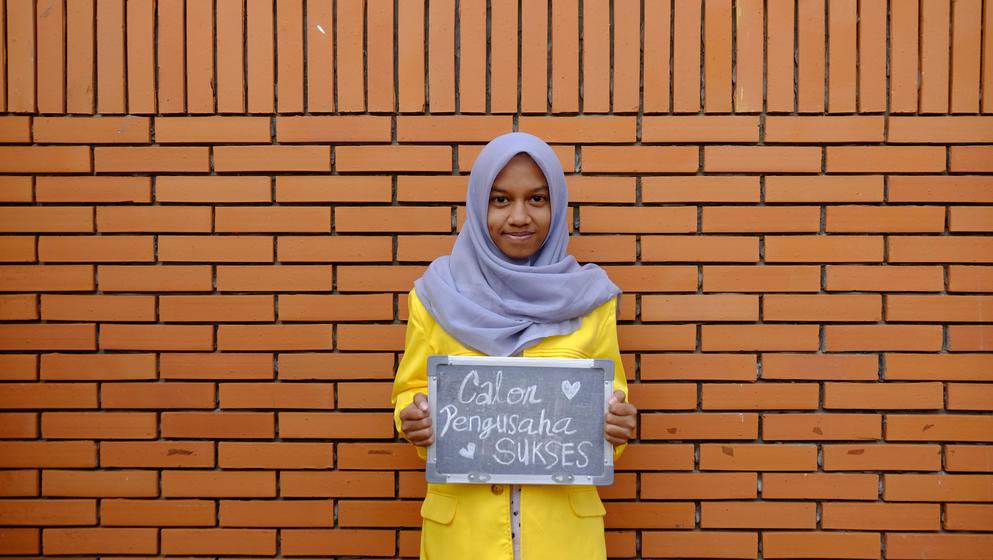 Calon
Pengusaha
SUKSES